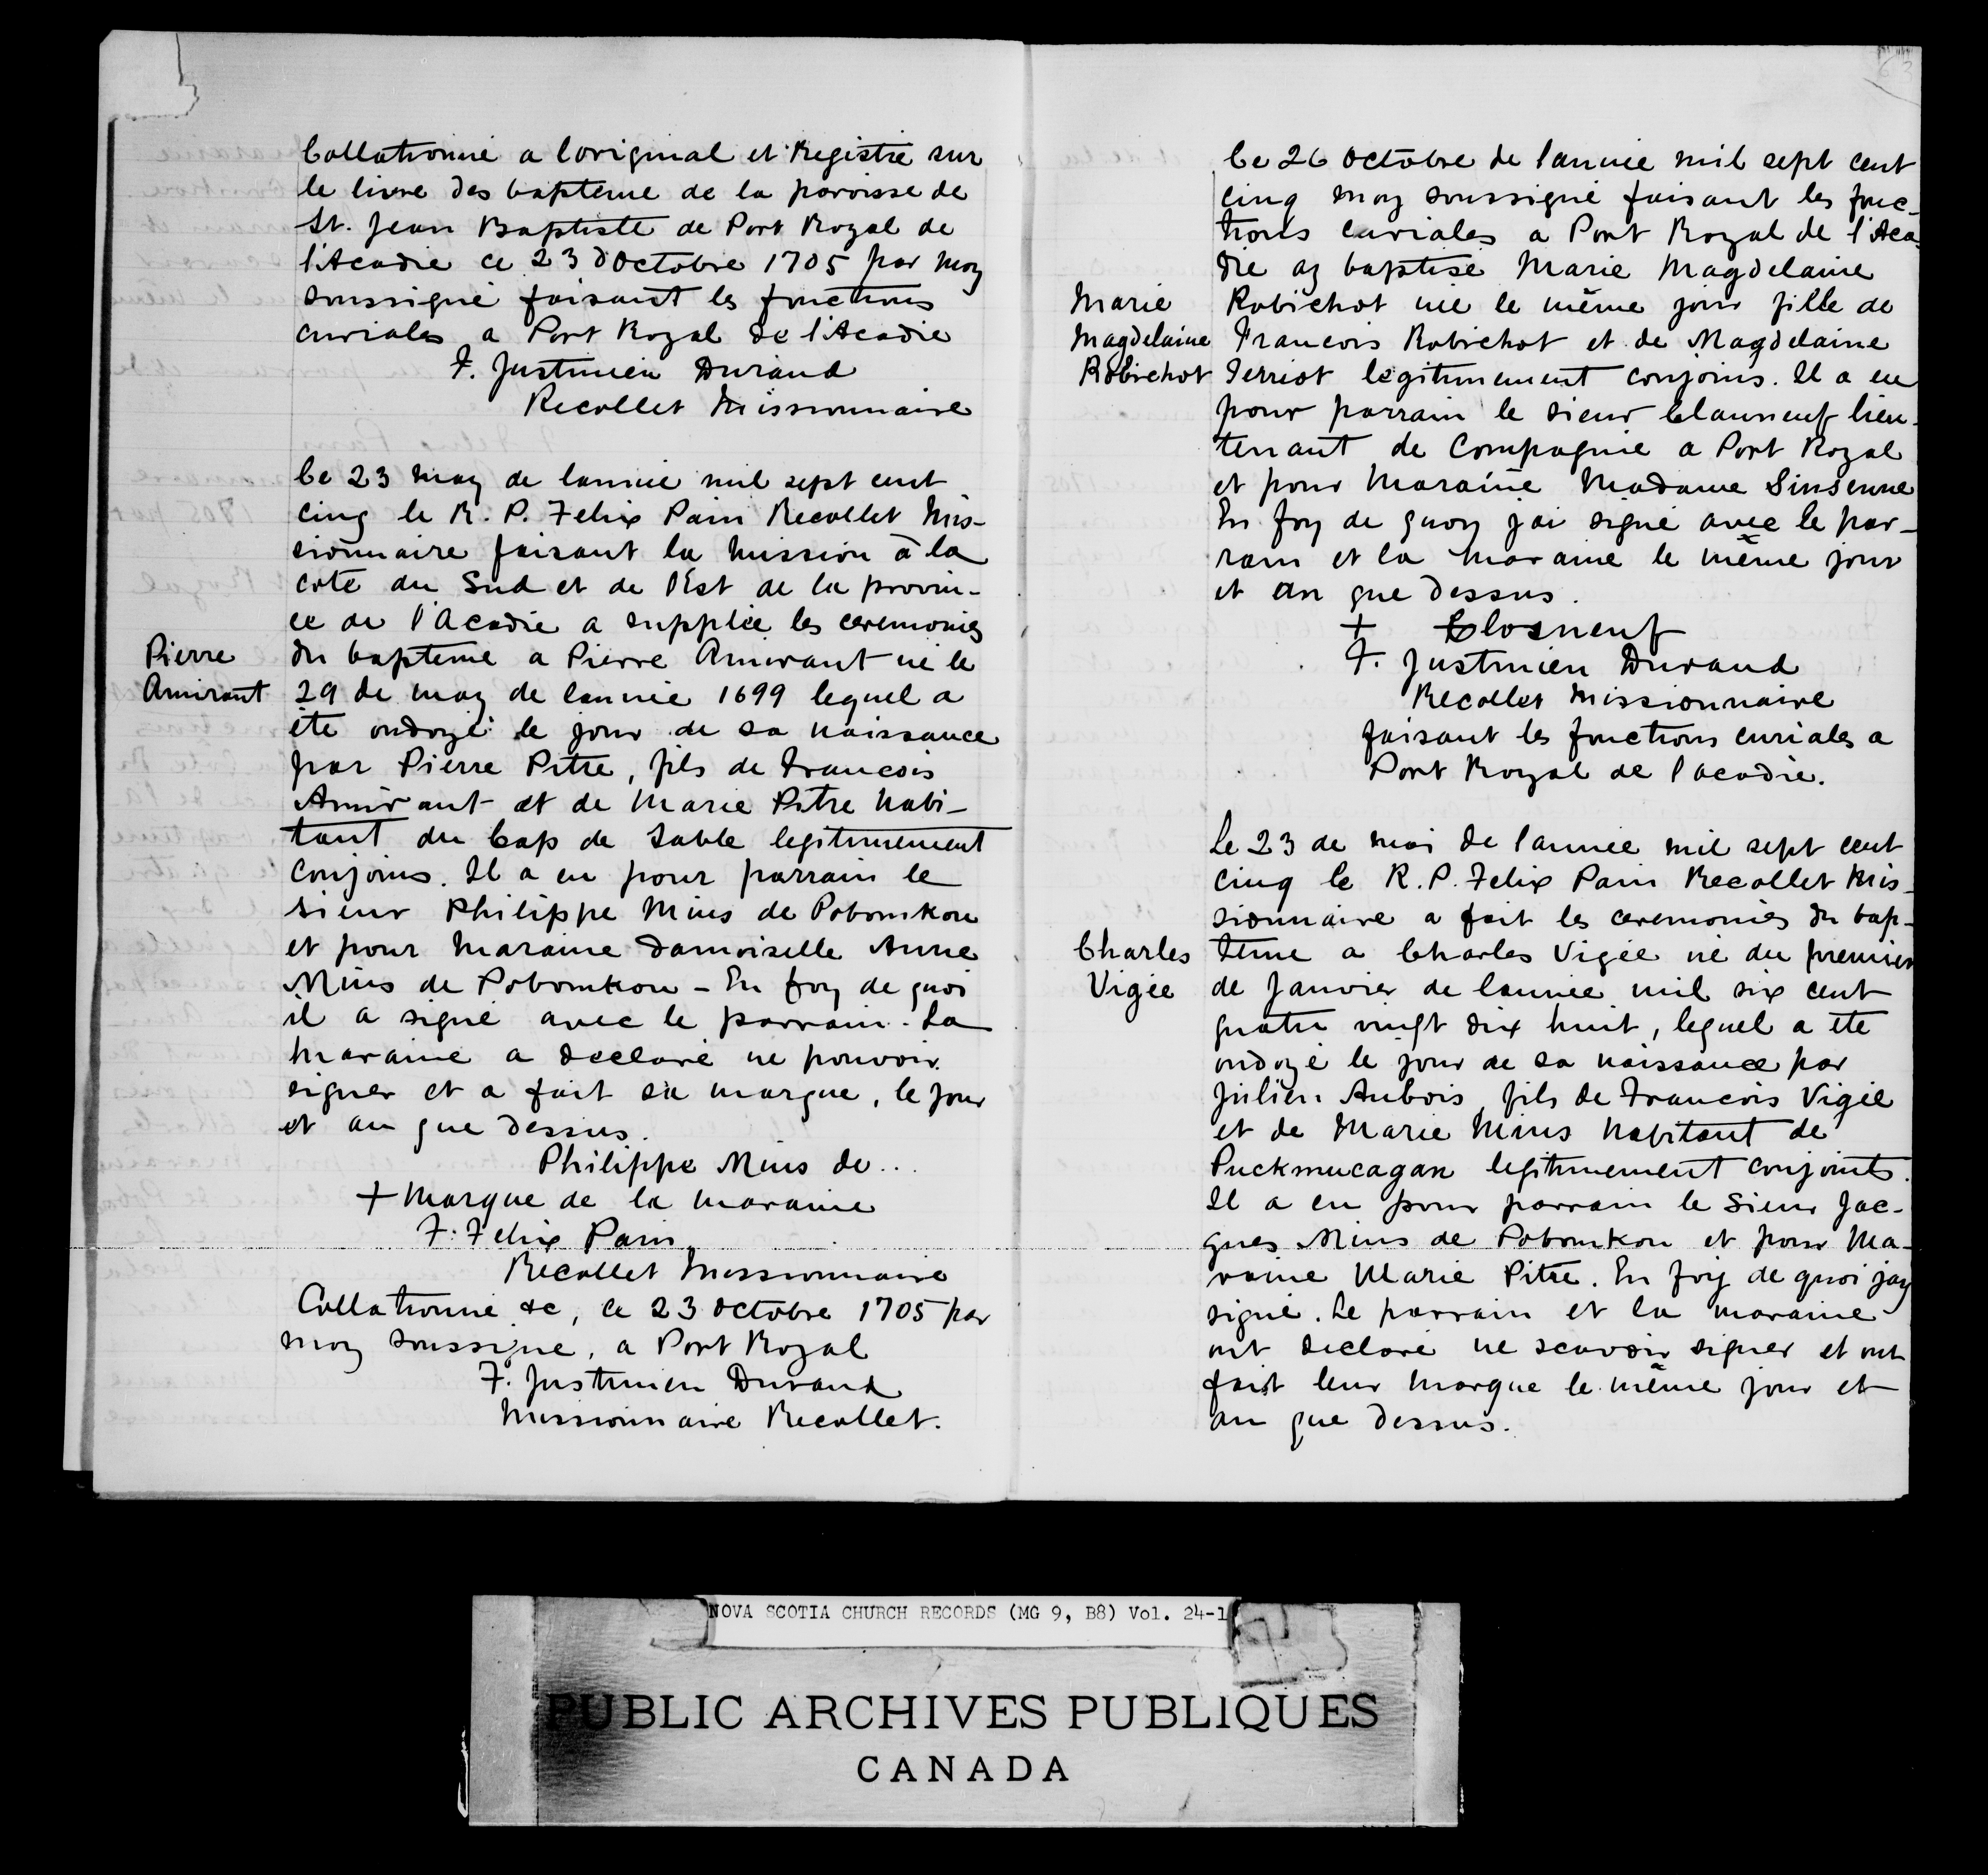 Collationné a loriginal et Registré sur
le livre des bapteme de la paroisse de
St. Jean Baptiste de Port Royal de
l'Acadie ce 23 d'Octobre 1705 par moy
soussigné faisant les fonctions
curiales a Port Royal de l'Acadie
F. Justinien Durand
Recollet Missionnaire
Ce 23 may de lannée mil sept cent
cinq le R. P. Felix Pain Recollet Mis-
sionnaire faisant la mission à la
cote du Sud et de l'Est de la provin-
ce de l'Acadie a supplée les ceremonies
Pierre
Amirant
du bapteme a Pierre Amirant né le
29 de may de lannée 1699 lequel a
été ondoyé le jour de sa naissance
par Pierre Pitre, fils de Francois
Amirant et de Marie Pitre habi-
tant du Cap de Sable legitimement
conjoins. Il a eu pour parrain le
sieur Philippe Mius de Pobomkou
et pour Maraine damoiselle Anne
Mius de Pobomkou - En foy de quoi
il a signé avec le parrain. La
maraine a declaré ne pouvoir
signer et a fait sa marque, le jour
et an que dessus.
Philippe Mius de...
+ Marque de la maraine
F. Felix Pain
Recollet Missionnaire
Collationné &c, ce 23 octobre 1705 par
moy soussigné, a Port Royal
F. Justinien Durand
Missionnaire Recollet.
63
Ce 26 octobre de lannée mil sept cent
cinq moy soussigné faisant les fonc-
tions curiales a Port Royal de l'Aca-
die ay baptisé Marie Magdelaine
Marie
Magdelaine
Robichot
Robichot née le même jour fille de
Francois Robichot et de Magdelaine
Terriot legitimement conjoins. Il a eu
pour parrain le sieur Clauneuf lieu-
tenant de Compagnie a Port Royal
et pour Maraine Madame Sinsenne
En foy de quoy j'ai signé avec le par-
rain et la maraine le même jour
et an que dessus.
+ Closneuf
F. Justinien Durand
Recollet Missionnaire
faisant les fonctions curiales a
Port Royal de l'acadie.
Le 23 de mai de lannée mil sept cent
cinq le R. P. Felix Pain Recollet Mis-
sionnaire a fait les ceremonies du bap-
Charles
Vigée
teme a Charles Vigée né du premier
de Janvier de lannée mil six cent
quatre vingt dix huit, lequel a été
ondoyé le jour de sa naissance par
Julien Aubois, fils de Francois Vigée
et de Marie Mius habitant de
Puckmucagan legitimement conjoints.
Il a eu pour parrain le Sieur Jac-
ques Mius de Pobomkou et pour Ma-
raine Marie Pitre. En foy de quoi jay
signé. Le parrain et la maraine
ont declaré ne scavoir signer et ont
fait leur marque le même jour et
an que dessus.
NOVA SCOTIA CHURCH RECORDS (MG 9, B8) Vol. 24-1
PUBLIC ARCHIVES PUBLIQUES
CANADA